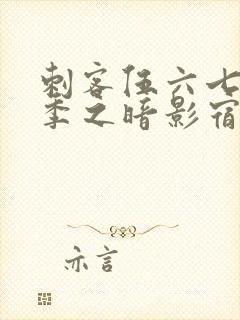 刺客伍六七
季之暗影宿
亦言